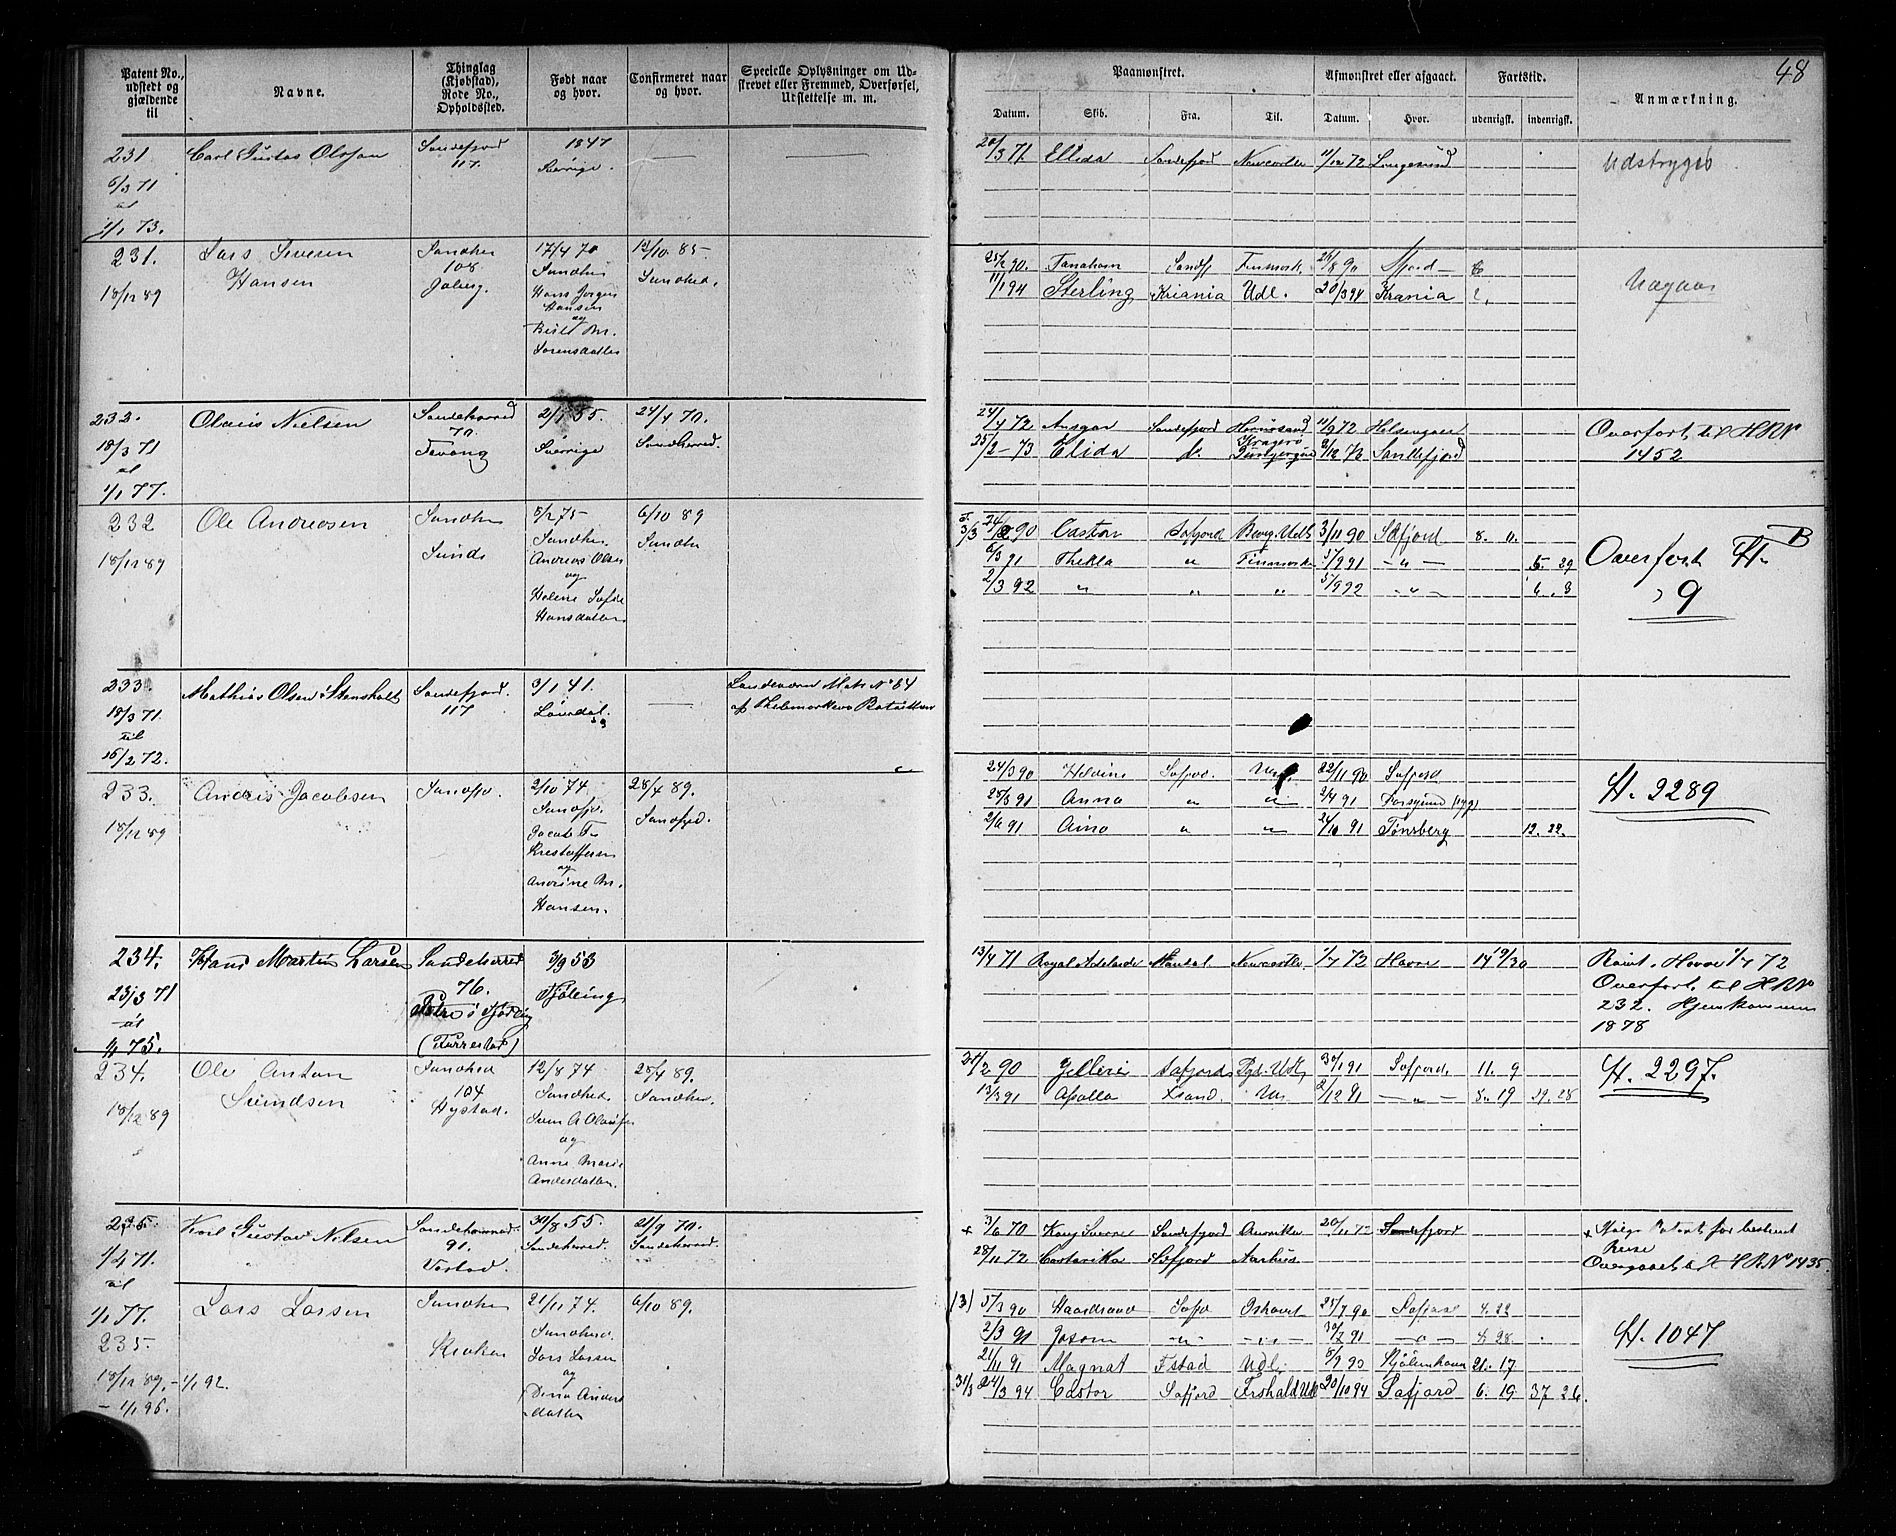 48
Patent No., udstedt og gjældende til
Navne.
Thinglag (Kjøbstad), Rode No., Opholdssted.
Født naar og hvor.
Confirmeret naar og hvor.
Specielle Oplysninger om Udskrevet eller Fremmed, Overførsel, Udslettelse m. m.
Paamønstret.
Afmønstret eller afgaaet.
Fartstid.
Anmærkning.
Datum.
Skib.
Fra.
Til.
Datum.
Hvor.
udenrigsk.
indenrigsk.
231 Carl Gustav Olsson Sandefjord 1847
6/3 71 117. Sverrige
til
1/1 73.
20/3 71 Ellida Sandefjord Newcastle 11/12 72 Langesund Udstryges
231. Lars Severin Sandher 17/4 70 12/10 85
Hansen 108 Sandher Sandhed.
18/12 89 Joberg. Hans Jørgen
Hansen
og
Berte M.
Sorensdatter
25/2 90. Tanahorn Sandfj Finmark 26/8 90 Sfjord
11/1 94 Sterling Kriania Udl. 20/3 94 Krania 2.
232. Olaus Nielsen Sandeherred 2/1 55 24/4 70.
18/3 71 70. Sverrige Sandeherred.
til Tevang
1/1 77.
24/4 72 Ansgar Sandefjord Hernøsand 11/9 72 Helsingør Overført til HRN
25/2 - 73 Elida Kragerø Sandefjord 1452
232 Ole Andreasen Sandher 5/2 75 6/10 89
18/12 89 Sunde Sandher. Sandher
Andreas Olsen
og
Helene Sofie
Hansdatter
90 Castor Safjord Berg. Udl. 3/11 90 Safjord 8. 11.
6/3 91 Thekla " Finmarken 5/9 91 - " - 5. 29
2/3 92 " " " 5/9 92 - " - 6. 3
Overført H. B
9
233. Mathias Olsen Stensholt Sandefjord. 3/1 41. Landeværn Mats No 64
18/3 71 117 Laurdal. af Thelemarkens Bataillon
til
16/2 72.
233. Andris Jacobsen Sandfj. 2/10 74 28/4 89.
18/12 89 Sandfj. Sandfjd.
Jacob F.
Kristoffersen
og
Andrine M.
Hansen.
24/3 90 Heldine Safjod. Udl. 22/11 90 Safjord
28/3 91 Anna " " 2/4 91 Farsund
2/6 91 Aino " " 24/10 91 Tønsberg 12. 22.
H. 2289
234. Hans Martin Larsen Sandeherred 3/9 53
23/3 71 76. Tjølling
til
1/1 75. (Furrestad)
13/4 71 Royal Adelaide Mandal Newcastle 1/7 72 Havre 14 19/30
Rømt Havre 1/7 72
Overført til HRN
232. Hjemkommen
1878
234. Ole Anton Sandhed 12/8 74 28/4 89.
Sundsen 104 Sandhed. Sandher.
18/12 89 Hystad. Sven A Olausen
og
Anne Marie
Andersdatter.
21/2 90 Gellere Safjord Udl. 30/1 91 Safjord. 11. 9
13/3 91 Apollo Lsand. Udl. 2/12 91 - " - 8. 19 29. 28
H. 2297.
235. Karl Gustav Nilsen Sandeherred 30/8 55. 21/9 70.
1/4 71. 91. Sandeherred. Sandeherred.
til Vestad.
1/1 77.
+ 3/6 70 Kong Sverre Sandefjord Amerika Sandefjord + Ifølge Patent for bestemt
Reise
28/11 72 Costarika Safjord Aarhus Overgaaet til HRNo 1435.
235. Lars Larsen Sandher 21/11 74. 6/10 89.
18/12 89, - 1/1 92. Krokan Sandhed.
- 1/1 96. Lars Larsen
og
Dina Anders
datter
5/3 90 Haardraad Safjo Ishavet 25/7 90 Safjord 4. 22
2/3 91 Jason - " - - " - 30/7 91 - " - 4 28
21/11 91 Magnat Fstad Udl. 5/9 93 Kjøbenhavn 21. 17
31/3 24/3 94 Castor Safjord Frshald Udl 20/10 94 Safjord 6. 19 37 26.
H. 1047